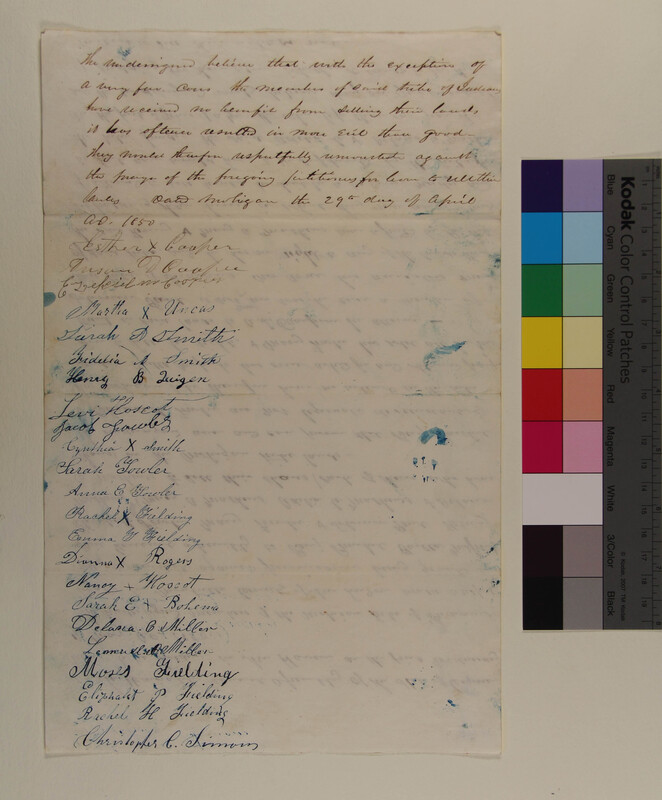 The undersigned believe that with the exception of
a very few cases the members of said tribe of Indians
have received no benefit from selling their lands
it has oftener resulted in more Evil than good
They would therefore respectfully remonstrate against
the prayer of the foregoing petitioners for leave to sell their
lands Dated Mohegan the 29th day of April
AD. 1850
Esther X Cooper
Cooper
E Cooper
Martha X Uncas
Sarah A Smith
Fidelia A Smith
Henry B Quigen
Levi Hoscot
Jacob Fowler
Cynthia X Smith
Sarah Fowler
Anna E Fowler
Rachel X Fielding
Emma Fielding
Dianna X Rogers
Nancy Hoscot
Sarah E X Bohema
Delana C Miller
Miller
Moses Fielding
Eliphalet P Fielding
Rachel H Fielding
Christopher C. Simons
Kodak Color Control Patches
Blue
Cyan
Green
Yellow
Red
Magenta
White
3/Color
Black